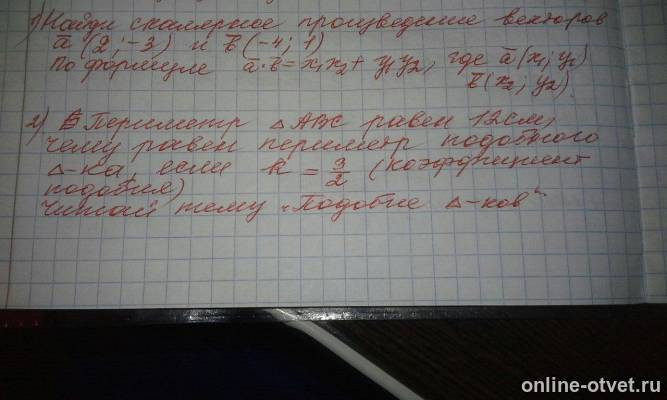 1) Найди скалярное произведение векторов
a̅ (2; -3) и b̅ (-4; 1)
по формуле a̅·b̅ = x₁x₂ + y₁y₂, где a̅ (x₁; y₁)
b̅ (x₂; y₂)
2) Периметр △ABC равен 12 см,
чему равен периметр подобного
△-ка, если k = 3/2 (коэффициент
подобия)
Читай тему „Подобие △-ков“
online-otvet.ru